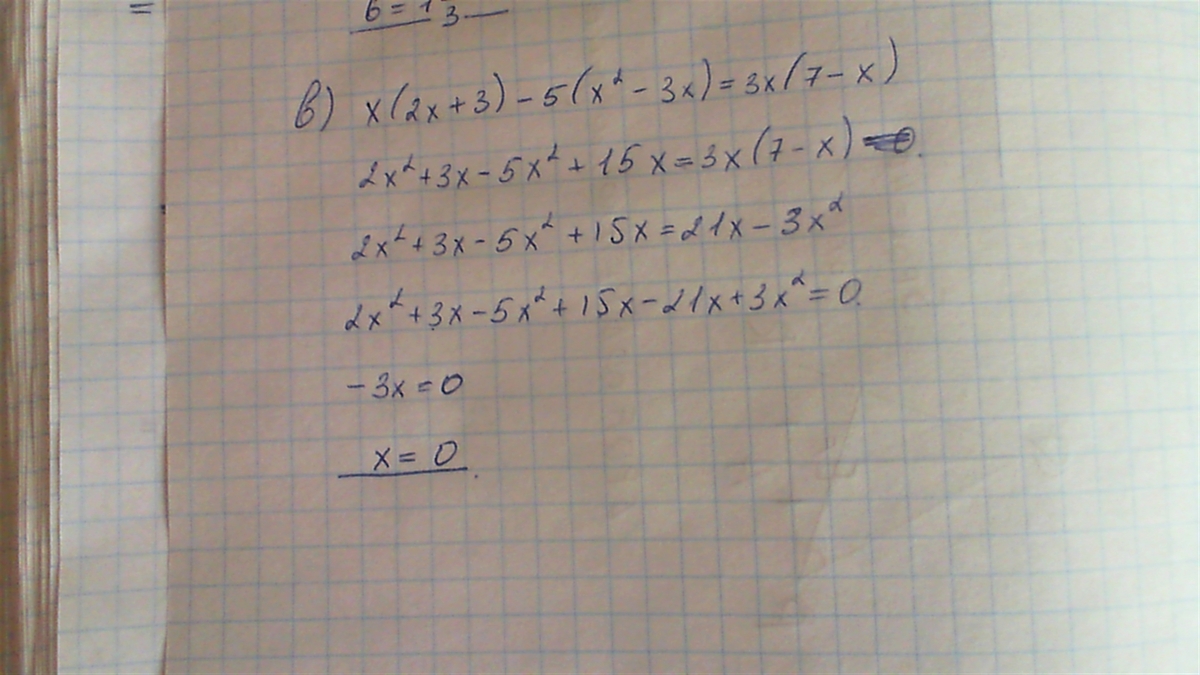 =
6 = 1 3
в) x(2x+3)-5(x²-3x)=3x(7-x)
2x²+3x-5x²+15x=3x(7-x)
2x²+3x-5x²+15x=21x-3x²
2x²+3x-5x²+15x-21x+3x²=0.
-3x=0
x=0.